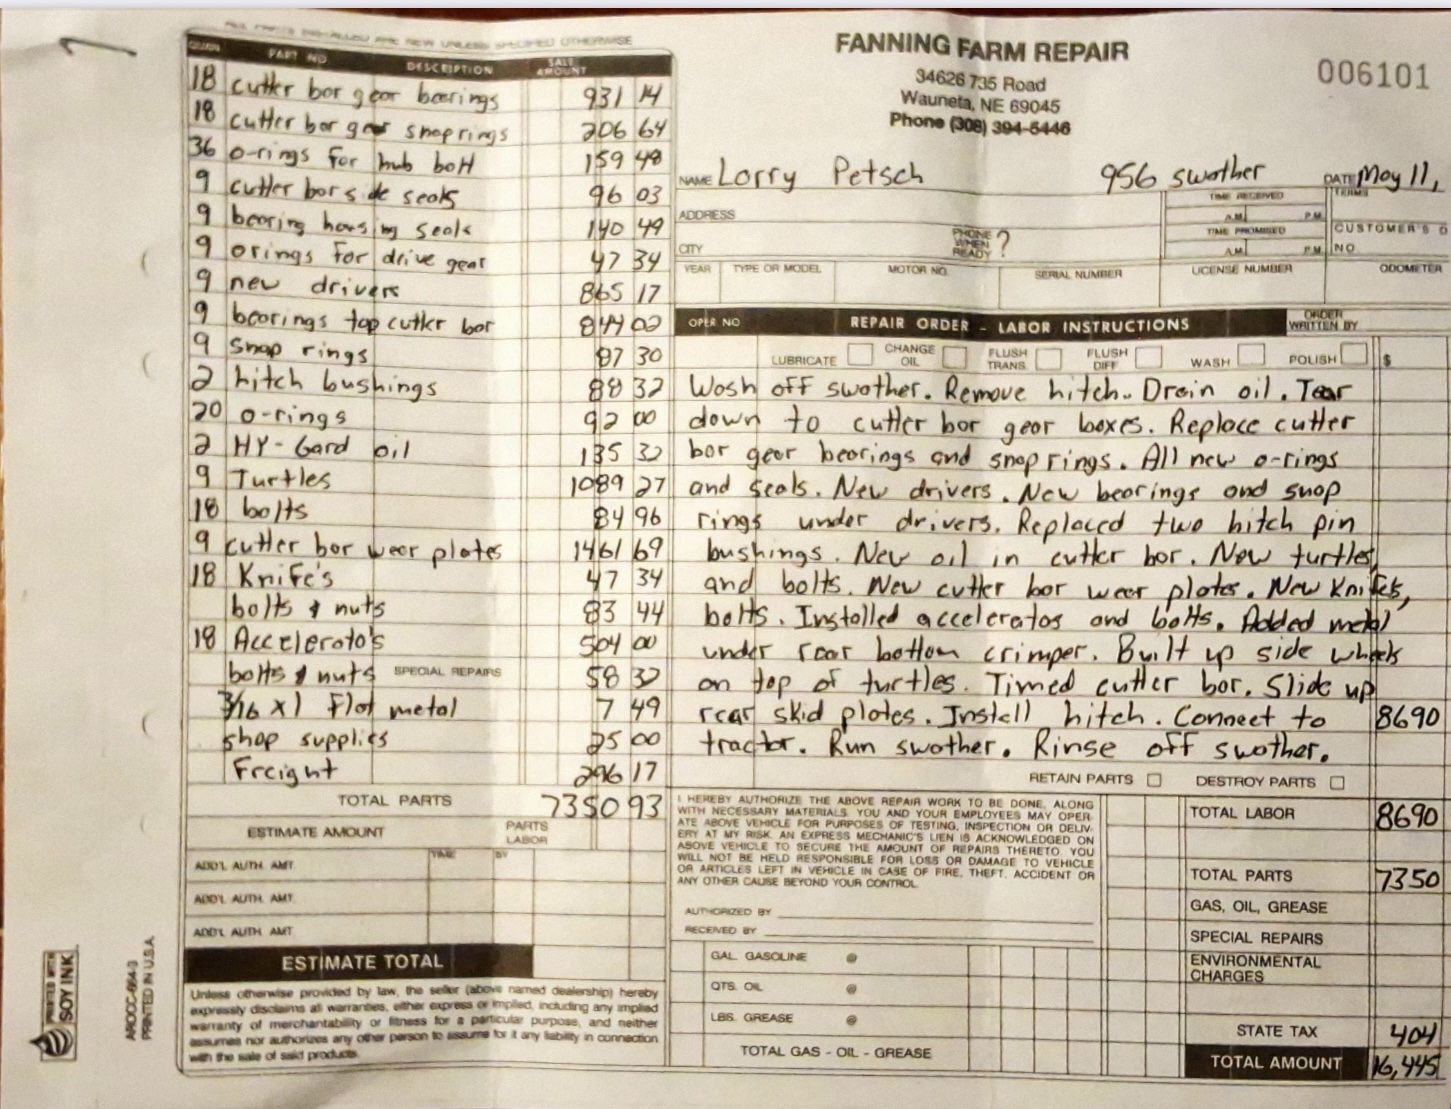 ALL PARTS INSTALLED ARE NEW UNLESS SPECIFIED OTHERWISE
QUAN. PART NO. DESCRIPTION SALE AMOUNT
18 cutter bar gear bearings 931 14
18 cutter bar gear snap rings 206 64
36 o-rings for hub bolt 159 48
9 cutter bar side seals 96 03
9 bearing housing seals 140 49
9 orings for drive gear 47 34
9 new drivers 865 17
9 bearings top cutter bar 844 02
9 snap rings 87 30
2 hitch bushings 88 32
20 o-rings 92 00
2 HY-Gard oil 135 32
9 Turtles 1089 27
18 bolts 84 96
9 cutter bar wear plates 1461 69
18 Knife's 47 34
bolts & nuts 83 44
18 Accelerato's 504 00
bolts & nuts SPECIAL REPAIRS 58 32
3/16 x 1 Flat metal 7 49
shop supplies 25 00
Freight 296 17
TOTAL PARTS 7350 93
ESTIMATE AMOUNT PARTS LABOR
TIME BY
ADD'L AUTH. AMT.
ADD'L AUTH. AMT.
ADD'L AUTH. AMT.
ESTIMATE TOTAL
Unless otherwise provided by law, the seller (above named dealership) hereby
expressly disclaims all warranties, either express or implied, including any implied
warranty of merchantability or fitness for a particular purpose, and neither
assumes nor authorizes any other person to assume for it any liability in connection
with the sale of said products.
PRINTED WITH SOY INK
AROCC-664-3
PRINTED IN U.S.A.
FANNING FARM REPAIR
34626 735 Road
Wauneta, NE 69045
Phone (308) 394-5446
006101
NAME Larry Petsch 956 swather DATE May 11,
ADDRESS TIME RECEIVED A.M. P.M. TERMS
CITY PHONE WHEN READY? TIME PROMISED A.M. P.M. CUSTOMER'S O NO.
YEAR TYPE OR MODEL MOTOR NO. SERIAL NUMBER LICENSE NUMBER ODOMETER
OPER NO REPAIR ORDER - LABOR INSTRUCTIONS ORDER WRITTEN BY
LUBRICATE CHANGE OIL FLUSH TRANS. FLUSH DIFF WASH POLISH $
Wash off swather. Remove hitch. Drain oil. Tear
down to cutter bar gear boxes. Replace cutter
bar gear bearings and snap rings. All new o-rings
and seals. New drivers. New bearings and snap
rings under drivers. Replaced two hitch pin
bushings. New oil in cutter bar. New turtles
and bolts. New cutter bar wear plates. New Knifes,
bolts. Installed acceleratos and bolts. Added metal
under rear bottom crimper. Built up side wheels
on top of turtles. Timed cutter bar. Slide up
rear skid plates. Install hitch. Connect to 8690
tractor. Run swather. Rinse off swather.
RETAIN PARTS DESTROY PARTS
I HEREBY AUTHORIZE THE ABOVE REPAIR WORK TO BE DONE, ALONG
WITH NECESSARY MATERIALS. YOU AND YOUR EMPLOYEES MAY OPER-
ATE ABOVE VEHICLE FOR PURPOSES OF TESTING, INSPECTION OR DELIV-
ERY AT MY RISK. AN EXPRESS MECHANIC'S LIEN IS ACKNOWLEDGED ON
ABOVE VEHICLE TO SECURE THE AMOUNT OF REPAIRS THERETO. YOU
WILL NOT BE HELD RESPONSIBLE FOR LOSS OR DAMAGE TO VEHICLE
OR ARTICLES LEFT IN VEHICLE IN CASE OF FIRE, THEFT, ACCIDENT OR
ANY OTHER CAUSE BEYOND YOUR CONTROL.
AUTHORIZED BY
RECEIVED BY
GAL. GASOLINE @
QTS. OIL @
LBS. GREASE @
TOTAL GAS - OIL - GREASE
TOTAL LABOR 8690
TOTAL PARTS 7350
GAS, OIL, GREASE
SPECIAL REPAIRS
ENVIRONMENTAL CHARGES
STATE TAX 404
TOTAL AMOUNT 16,445